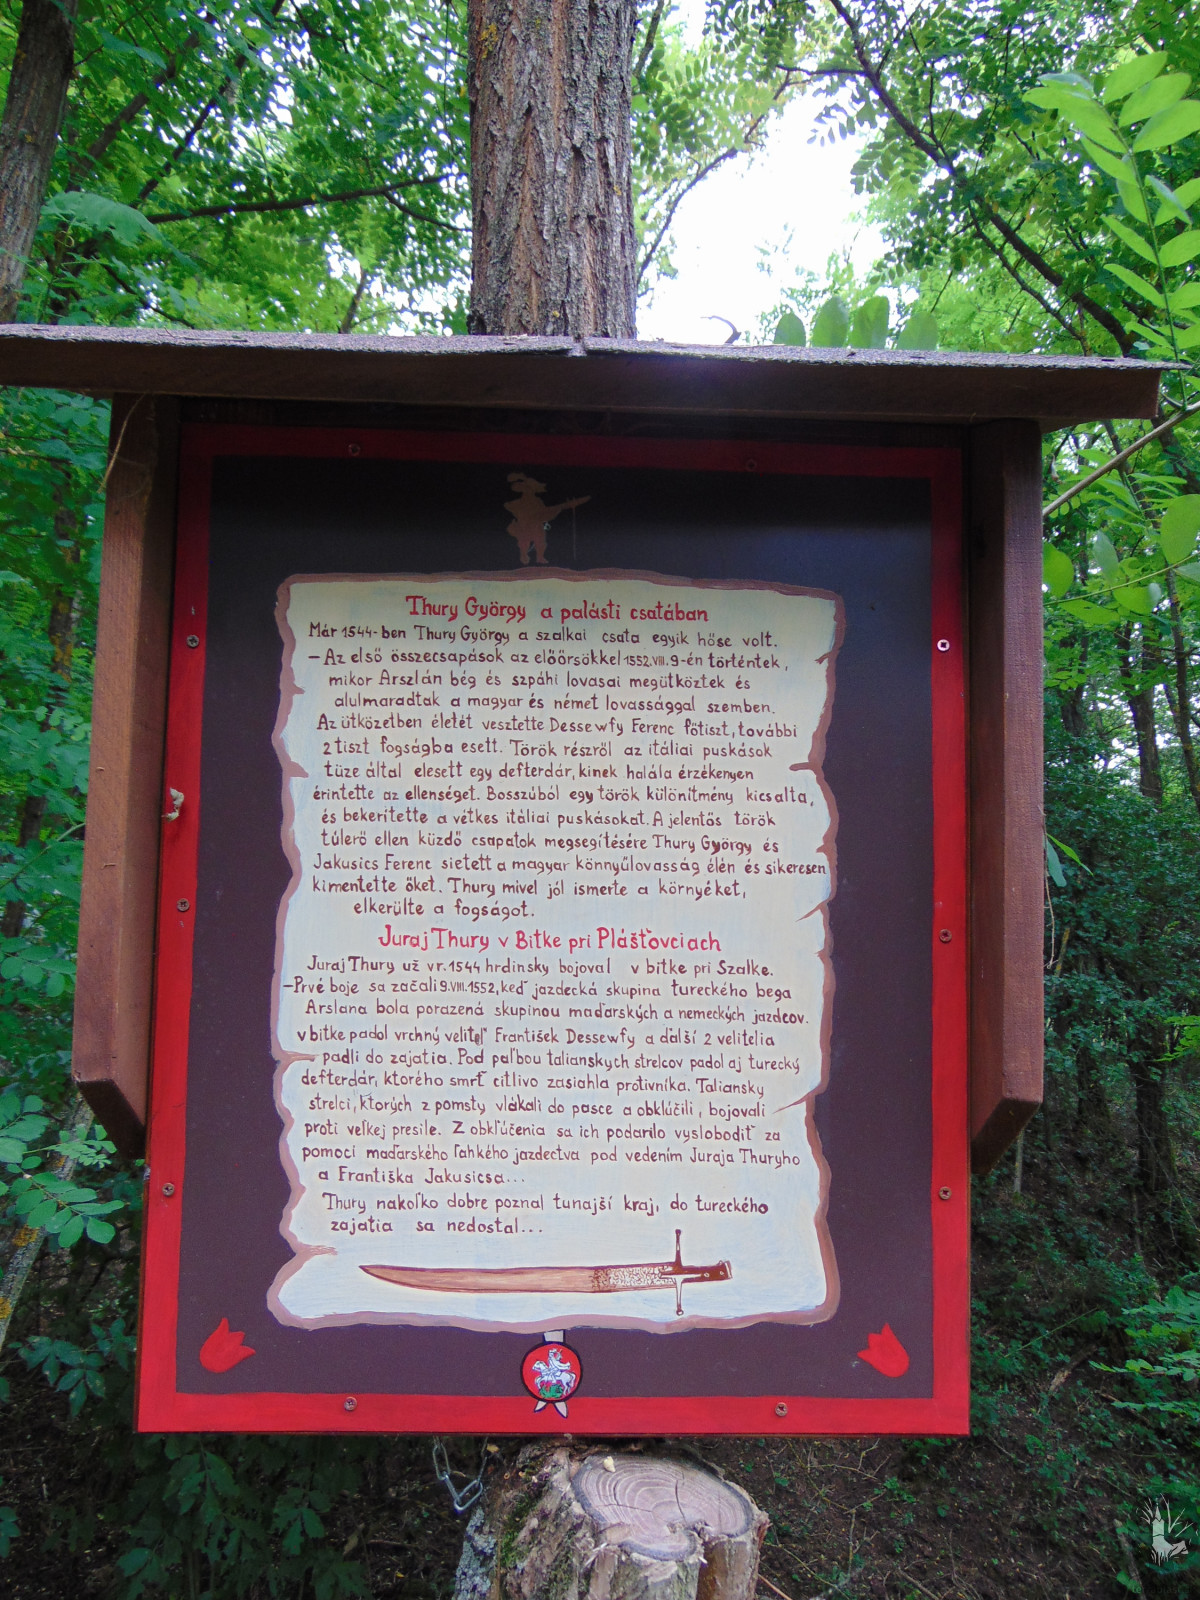 Thury György a palásti csatában
Már 1544-ben Thury György a szalkai csata egyik hőse volt.
– Az első összecsapások az előőrsökkel 1552.VIII.9-én történtek,
mikor Arszlán bég és szpáhi lovasai megütköztek és
alulmaradtak a magyar és német lovassággal szemben.
Az ütközetben életét vesztette Dessewfy Ferenc főtiszt, további
2 tiszt fogságba esett. Török részről az itáliai puskások
tüze által elesett egy defterdár, kinek halála érzékenyen
érintette az ellenséget. Bosszúból egy török különítmény kicsalta,
és bekerítette a vétkes itáliai puskásokat. A jelentős török
túlerő ellen küzdő csapatok megsegítésére Thury György és
Jakusics Ferenc sietett a magyar könnyűlovasság élén és sikeresen
kimentette őket. Thury mivel jól ismerte a környéket,
elkerülte a fogságot.
Juraj Thury v Bitke pri Plášťovciach
Juraj Thury už v r. 1544 hrdinsky bojoval v bitke pri Szalke.
– Prvé boje sa začali 9.VIII.1552, keď jazdecká skupina tureckého bega
Arslana bola porazená skupinou maďarských a nemeckých jazdcov.
v bitke padol vrchný veliteľ František Dessewfy a ďalší 2 velitelia
padli do zajatia. Pod paľbou talianskych strelcov padol aj turecký
defterdár, ktorého smrť citlivo zasiahla protivníka. Taliansky
strelci, ktorých z pomsty vlákali do pasce a obkľúčili, bojovali
proti veľkej presile. Z obkľúčenia sa ich podarilo vyslobodiť za
pomoci maďarského ľahkého jazdectva pod vedením Juraja Thuryho
a Františka Jakusicsa...
Thury nakoľko dobre poznal tunajší kraj, do tureckého
zajatia sa nedostal...